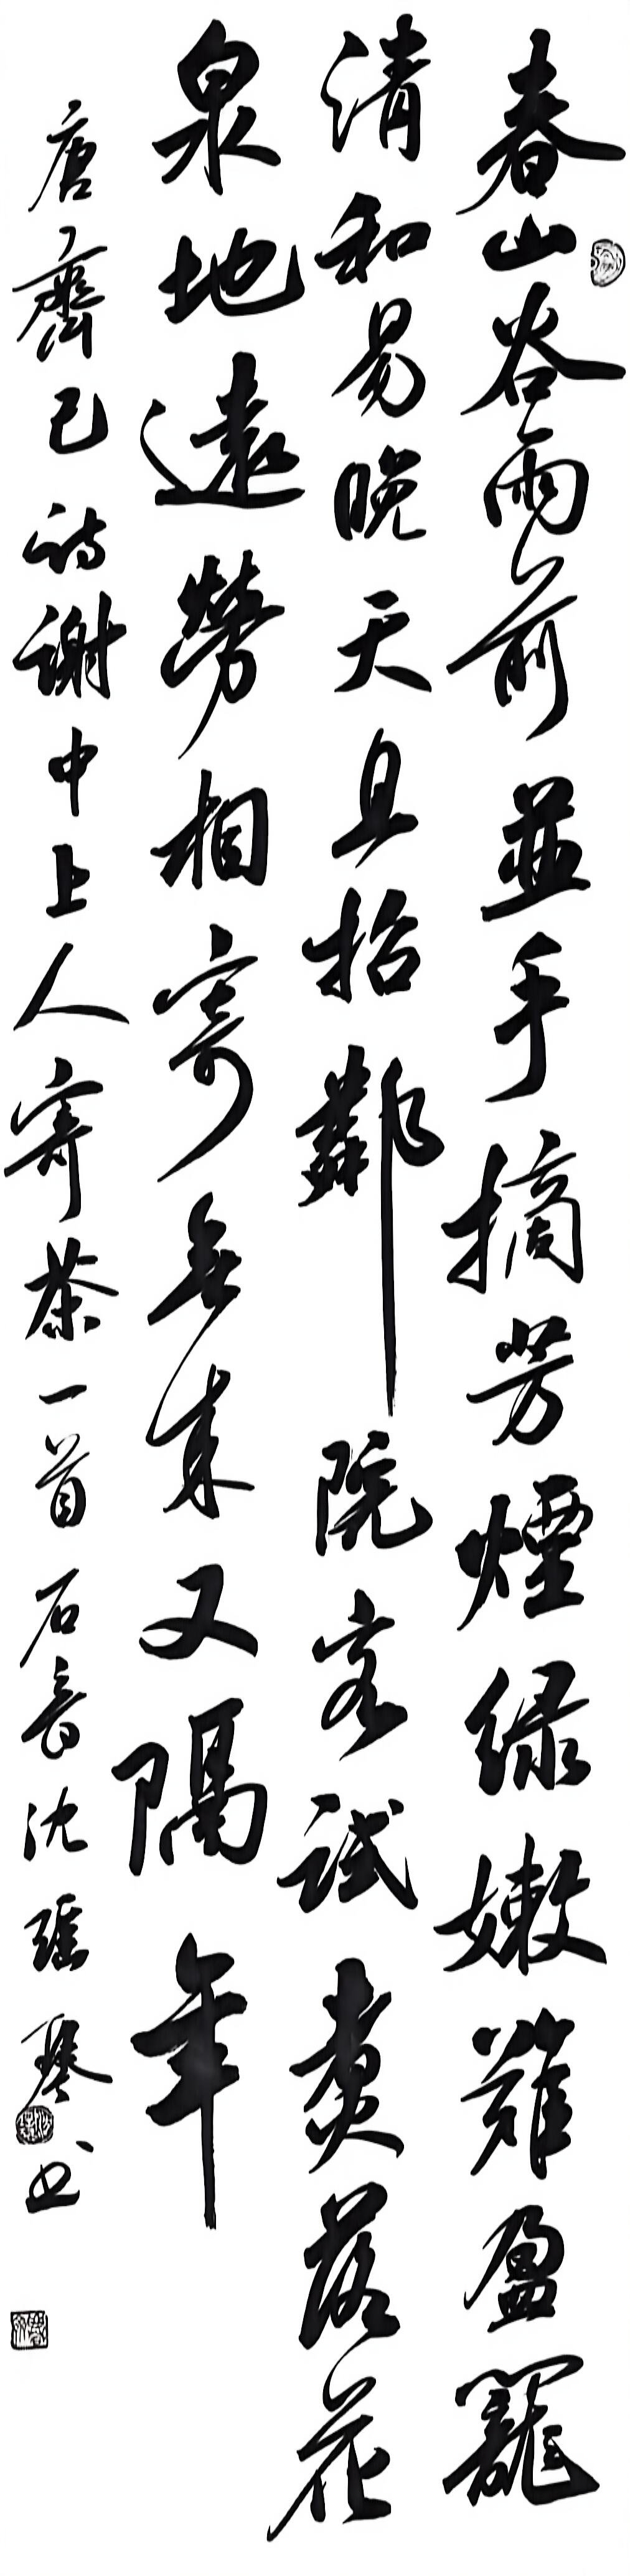 春山谷雨前並手摘芳煙绿嫩難盈籠
清和易晚天且招鄰院客試煮落花
泉地遠勞相寄無來又隔年
唐齊己詩謝中上人寄茶一首石長沈瑶琴书